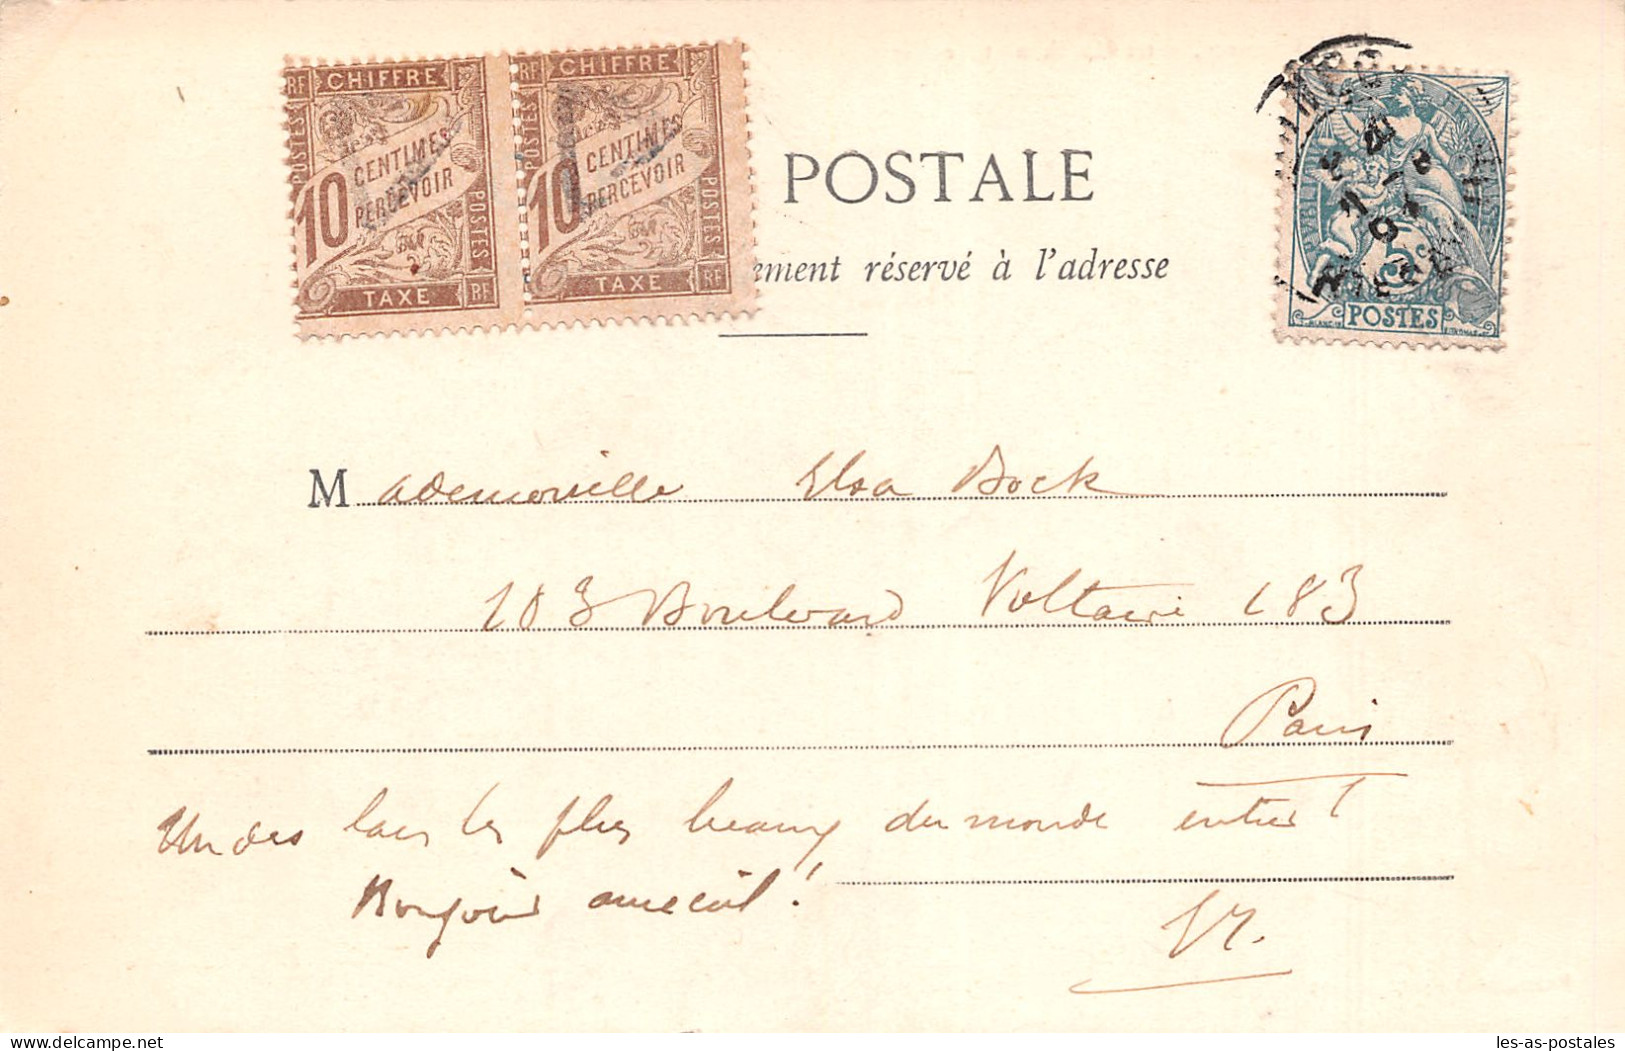 RF CHIFFRE
POSTES
10 CENTIMES
PERCEVOIR
POSTES
TAXE RF
RF CHIFFRE
POSTES
10 CENTIMES
PERCEVOIR
POSTES
TAXE RF
POSTALE
ement réservé à l'adresse
5c
POSTES
Mademoiselle Elsa Bock
183 Boulevard Voltaire 183
Paris
Un des lacs les plus beaux du monde entier!
Bonjour amical!
les-as-postales